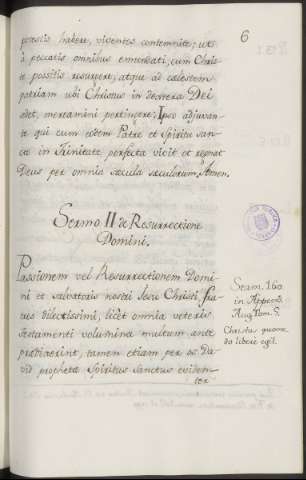 6
potestis habere, viventes contemnite; ut
à peccatis omnibus emundati, cum Chris-
to possitis resurgere, atque ad celestem
patriam ubi Christus in dextera Dei
sedet, mereamini pertingere: Ipso adjuvan-
te qui cum eodem Patre et Spiritu sanc-
to in Trinitate perfecta vivit et regnat
Deus per omnia sæcula sæculorum. Amen.
Sermo II de Resurrectione
Domini.
Passionem vel Resurrectionem Domi-
ni et salvatoris nostri Jesu Christi, fra-
tres dilectissimi, licèt omnia veteris
testamenti volumina multum ante
prædixerint, tamen etiam per os Da-
vid prophetæ Spiritus Sanctus eviden-
ter
Serm. 160
in Append.
Aug. Tom. 5.
Christus quomo-
do liberè egit.